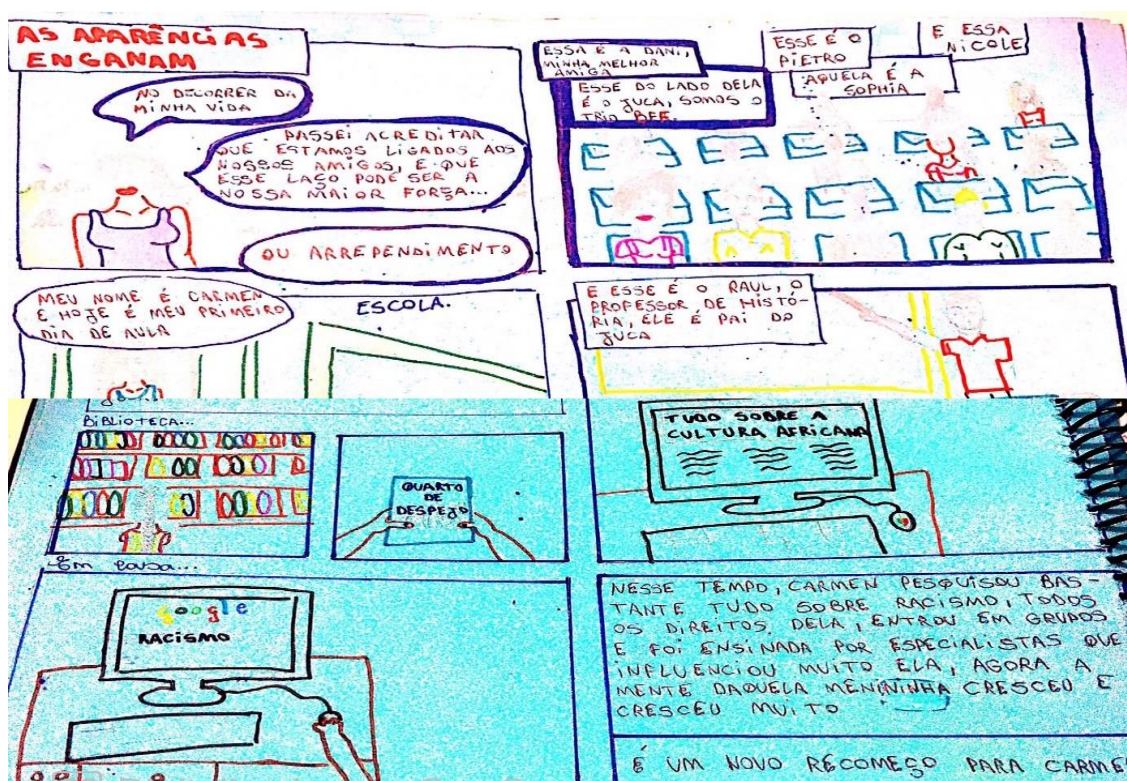 AS APARÊNCIAS
ENGANAM
NO DECORRER DA
MINHA VIDA
PASSEI ACREDITAR
QUE ESTAMOS LIGADOS AOS
NOSSOS AMIGOS, E QUE
ESSE LAÇO PODE SER A
NOSSA MAIOR FORÇA...
OU ARREPENDIMENTO
ESSA É A DANI,
MINHA MELHOR
AMIGA
ESSE DO LADO DELA
É O JUCA, SOMOS O
TRIO BFF.
ESSE É O
PIETRO
AQUELA É A
SOPHIA
E ESSA
NICOLE
MEU NOME É CARMEN
E HOJE É MEU PRIMEIRO
DIA DE AULA
ESCOLA.
E ESSE É O RAUL, O
PROFESSOR DE HISTÓ-
RIA, ELE É PAI DO
JUCA
BIBLIOTECA...
QUARTO
DE
DESPEJO
TUDO SOBRE A
CULTURA AFRICANA
Em casa...
google
RACISMO
NESSE TEMPO, CARMEN PESQUISOU BAS-
TANTE TUDO SOBRE RACISMO, TODOS
OS DIREITOS DELA, ENTROU EM GRUPOS
E FOI ENSINADA POR ESPECIALISTAS QUE
INFLUENCIOU MUITO ELA, AGORA A
MENTE DAQUELA MENININHA CRESCEU E
CRESCEU MUITO
É UM NOVO RECOMEÇO PARA CARME